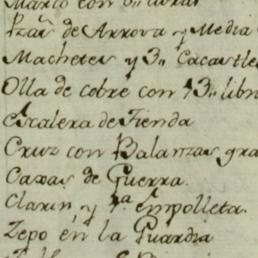 Marco con 8 libras
Pzas de Arrova y Media
Machetes y 3" Cacastles
Olla de cobre con 13" libr
escalera de Tienda
Cruz con Balanzas gra
Caxas de Guerra.
Clarin y 1a empolleta.
Zepo en la Guardia